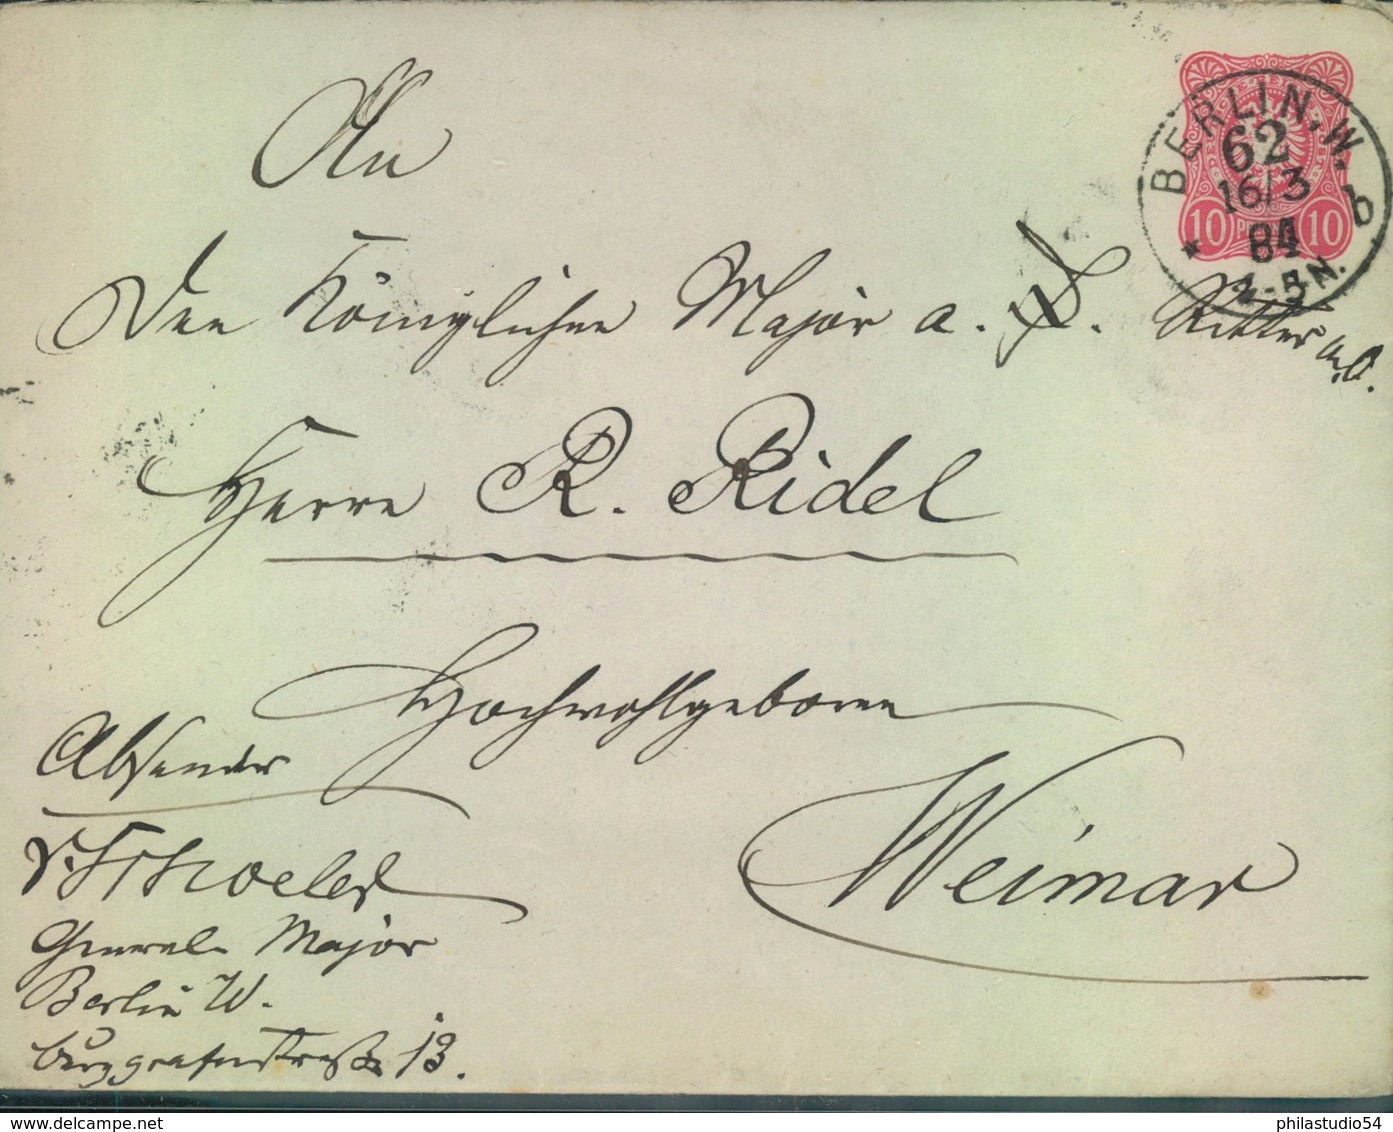 An
BERLIN, W.
62
16/3
84
2-3 N.
* b
10 PF 10
Den Königlichen Major a. D. Ritter
Herrn R. Ridel
Hochwohlgeboren
Weimar
Absender
v.
General-Major
Berlin W.
Burggrafenstraße 13.
www.delcampe.net
philastudio54